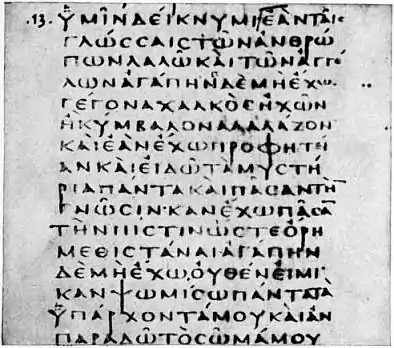 .13. ΫΜῖΝΔΕΊΚΝΥΜΙΕΑΝΤΑΙϹ
ΓΛΩϹϹΑΙϹΤΩΝΑΝΘΡΩ
ΠΩΝΛΑΛΩΚΑΙΤΩΝΑΓΓΕ
ΛΩΝΑΓΑΠΗΝΔΕΜΗΕΧΩ
ΓΕΓΟΝΑΧΑΛΚΟϹΗΧΩΝ
ΗΚΥΜΒΑΛΟΝΑΛΑΛΑΖΟΝ
ΚΑΙΕΑΝΕΧΩΠΡΟΦΗΤΕΙ
ΑΝΚΑΙΕΙΔΩΤΑΜΥϹΤΗ
ΡΙΑΠΑΝΤΑΚΑΙΠΑϹΑΝΤΗ̅
ΓΝΩϹΙΝ·ΚΑΝΕΧΩΠΑϹΑ̅
ΤΗΝΠΙϹΤΙΝΩϹΤΕΟΡΗ
ΜΕΘΙϹΤΑΝΑΙ·ΑΓΑΠΗΝ
ΔΕΜΗΕΧΩ,ΟΥΘΕΝΕΙΜΙ
ΚΑΝΨΩΜΙϹΩΠΑΝΤΑΤΑ
ΫΠΑΡΧΟΝΤΑΜΟΥΚΑΙΑΝ
ΠΑΡΑΔΩΤΟϹΩΜΑΜΟΥ